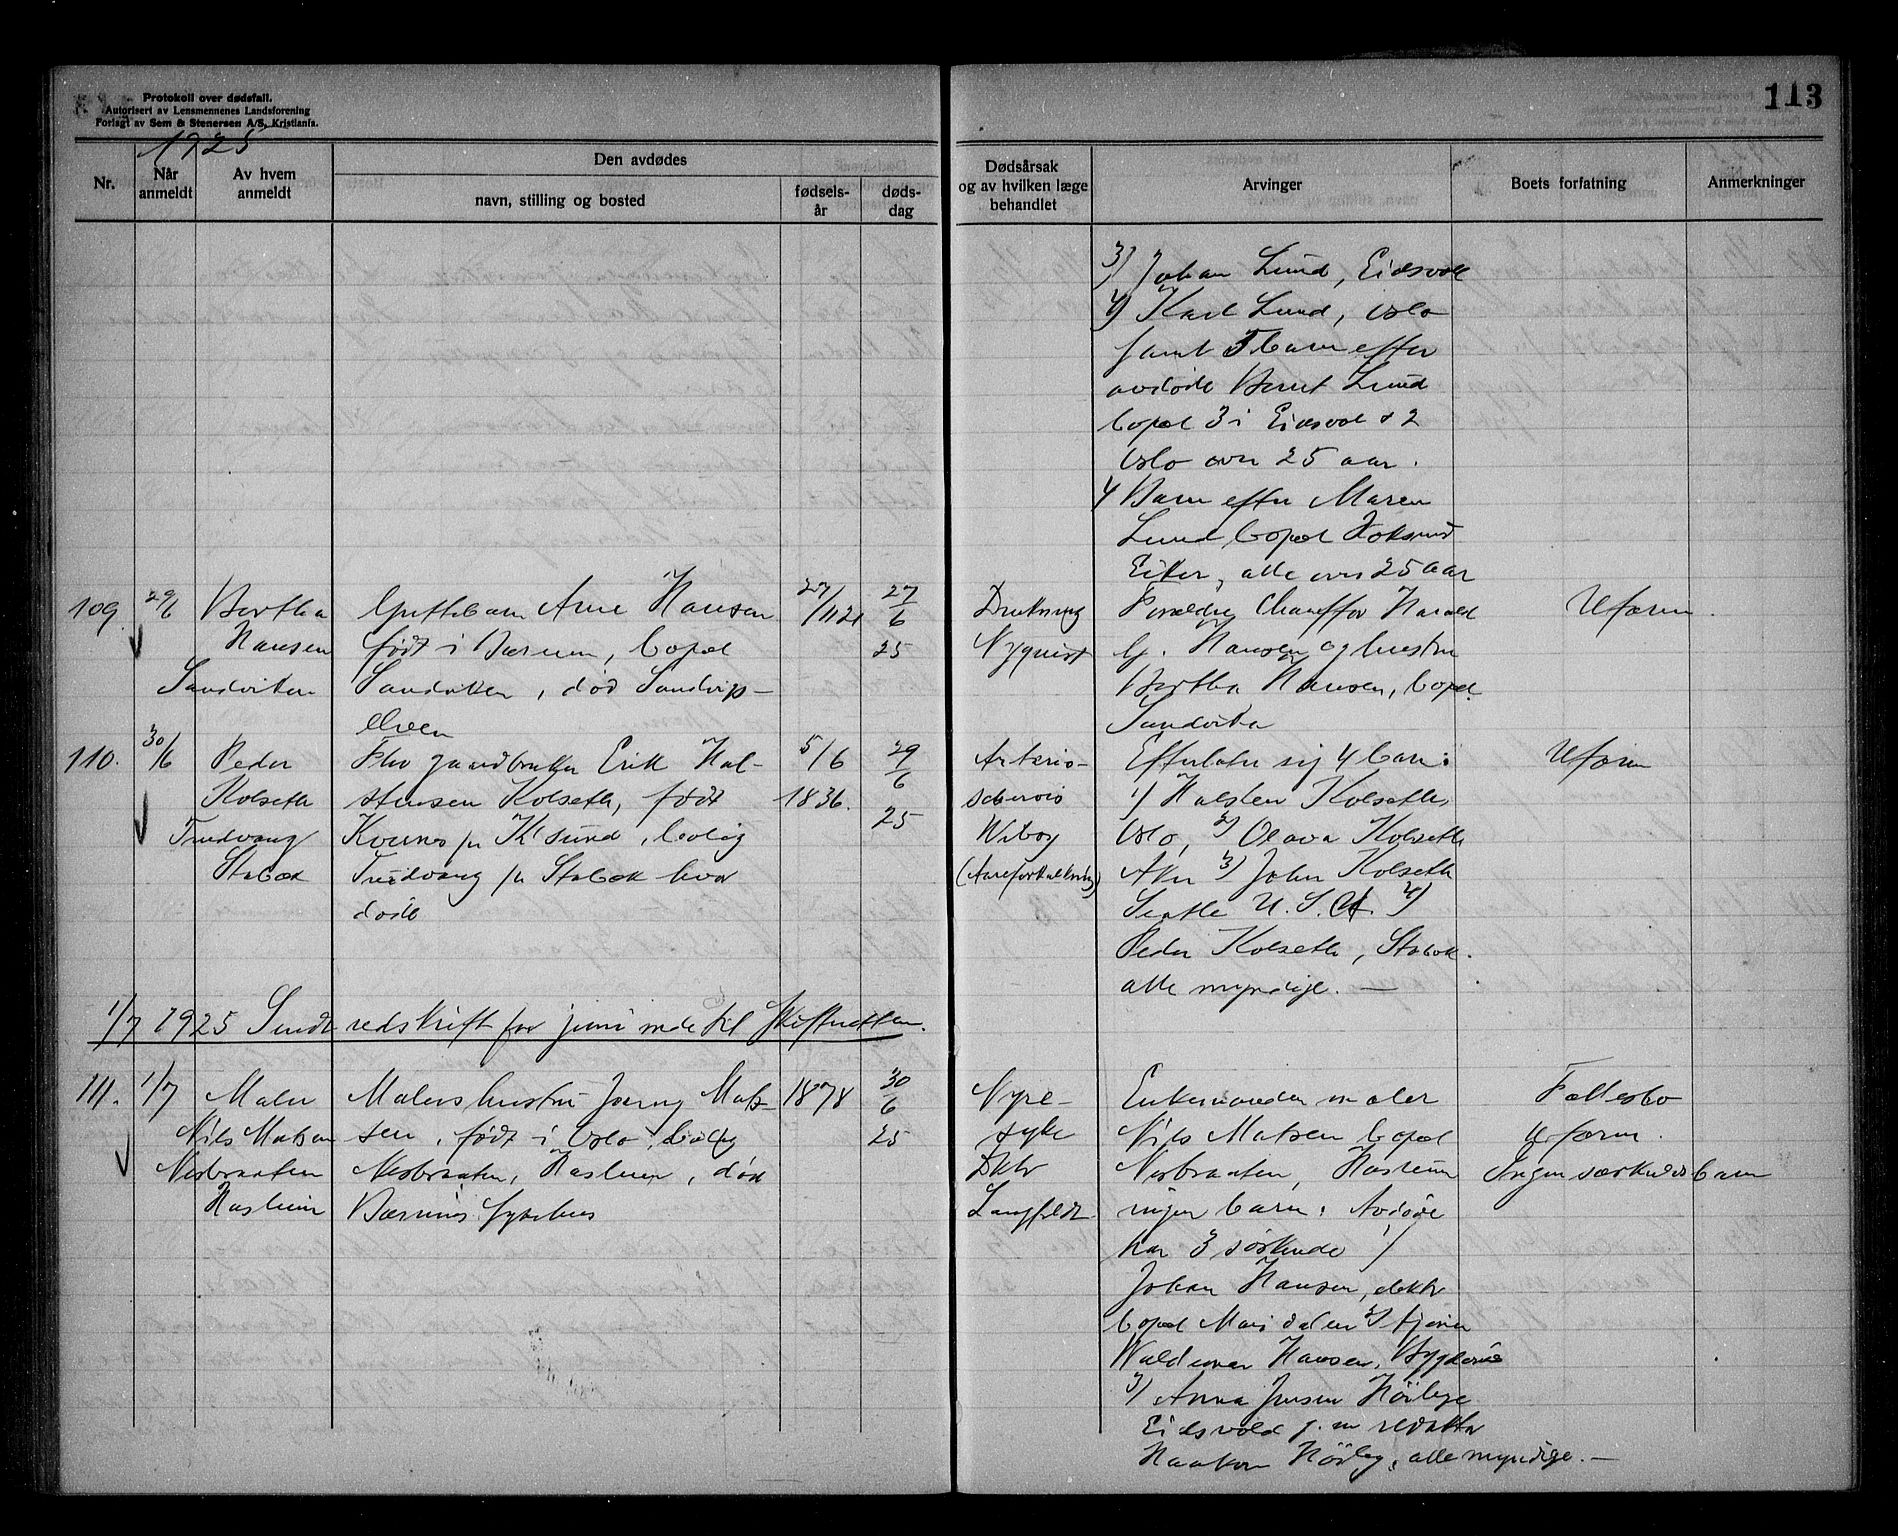 Protokoll over dødsfall.
Autorisert av Lensmennenes Landsforening
Forlagt av Sem & Stenersen A/S, Kristiania.
113
1925
Nr.
Når anmeldt
Av hvem anmeldt
Den avdødes
navn, stilling og bosted
fødsels-år
døds-dag
Dødsårsak og av hvilken læge behandlet
Arvinger
Boets forfatning
Anmerkninger
3) Johan Lund, Eidsvold
4) Karl Lund, Oslo
samt 5 barn efter
avdöde Bernt Lund
bopæl 3 i Eidsvol & 2
Oslo over 25 aar.
4 Barn efter Maren
Lund, bopæl Hoksund
Eiker, alle over 25 aar
109. 29/6 Bertha
Hansen
Sandviken
Guttebarn Arne Hansen
født i Bærum, bopæl
Sandviken, död Sandvigs-
elven
27/11 21
27/6
25
Drukning
Nyquist
Foreldre Chauffør Harald
G. Hansen og hustru
Bertha Hansen, bopæl
Sandvika
Uformu
110. 30/6 Peder
Kolseth
Trudvang
Stabæk
Fhv gaardbruker Erik Hal-
stensen Kolseth, født
Kvernes pr Kr sund, bolig
Trudvang pr Stabæk hvor
döde
5/6
1836.
29/6
25
Arterio-
sclerosis
Wiborg
(Aareforkalkning)
Efterlater sig 4 barn:
1) Halsten Kolseth,
Oslo, 2) Olava Kolseth
Aker 3) John Kolseth
Seatle U.S.A. 4)
Peder Kolseth, Stabæk.
alle myndige. —
Uformu
1/7 1925 Sendt avskrift for juni mdr til Skifteretten.
111. 1/7 Maler
Nils Matsen
Nesbraaten
Haslum
Malers hustru Jenny Mat-
sen, født i Oslo, bolig
Nesbraaten, Haslum, död
Bærums sykehus
1878
30/6
25
Nyre-
syke
Dktr
Langfeldt
Enkemanden maler
Nils Matsen bopæl
Nesbraaten, Haslum
ingen barn. Avdöde
har 3 söskende 1)
Johan Hansen,
bopæl Maridalen 2)
Waldemar Hansen,
3) Anna Jensen Höiby
Eidsvold g. m. redaktör
Haakon Höiby, alle myndige. —
Fællesbo
Uformu.
Ingen særkuldsbarn